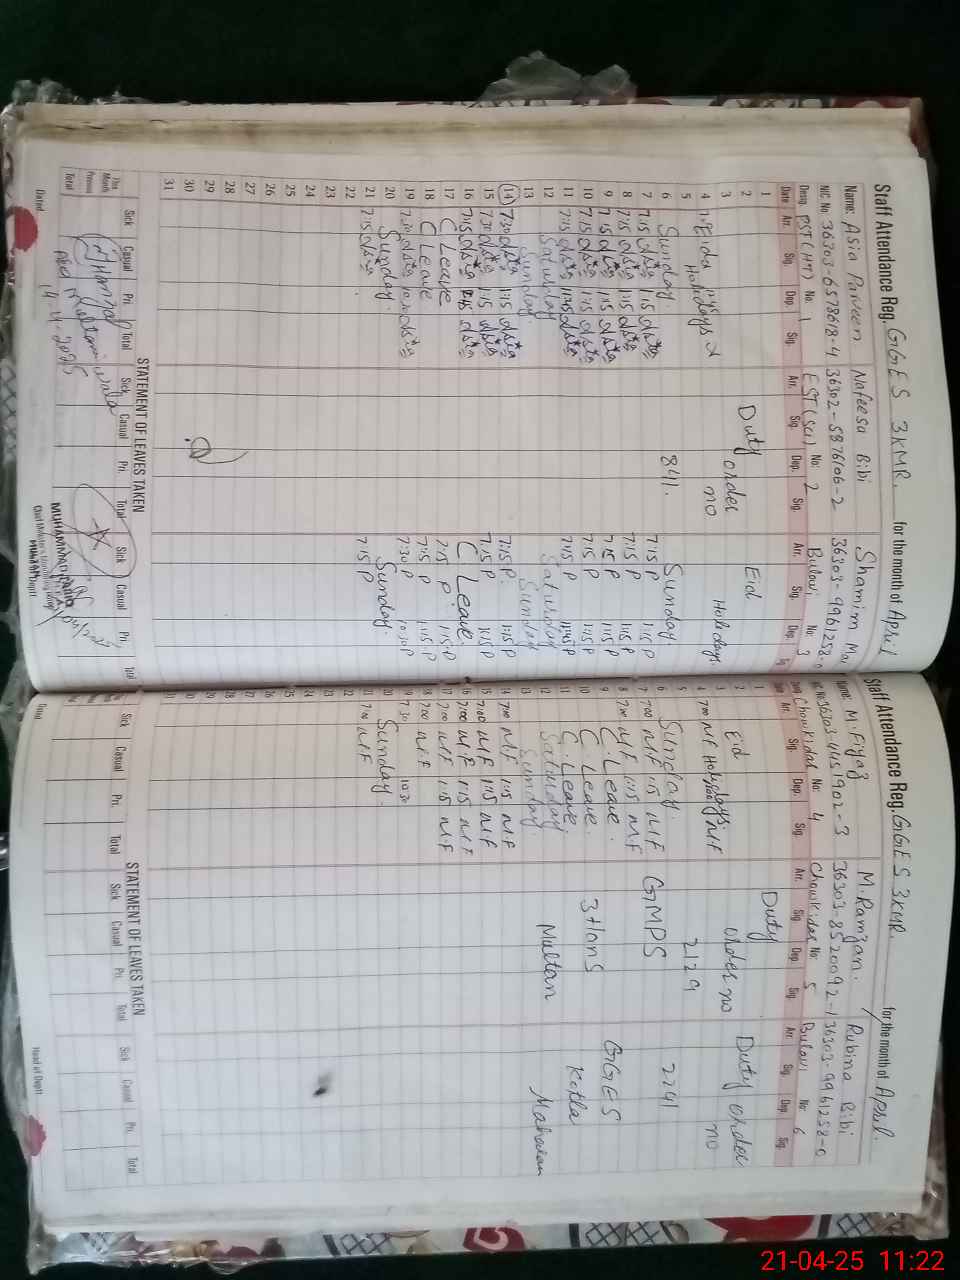 Staff Attendance Reg. GGES 3KMR. for the month of April
Name: Asia Parveen Nafeesa Bibi Shamim Ma
NIC No. 36303-6578618-4 36302-5876106-2 36303-9961258-0
Desig. PST(HT) No. 1 EST(Sci) No: 2 Bulawi No: 3
Date Arr. Sig. Dep. Sig. Arr. Sig. Dep. Sig. Arr. Sig. Dep.
1
2 Duty order no Eid Holidays.
3
4 Eids Holidays
5
6 Sunday. 841. Sunday.
7 7:15 1:15 7:15 P 1:15 P
8 7:15 1:15 7:15 P 1:15 P
9 7:15 1:15 7:15 P 1:15 P
10 7:15 1:15 7:15 P 1:15 P
11 7:15 11:45 7:15 P 11:45 P
12 Saturday Saturday
13 Sunday Sunday
14 7:30 1:15 7:15 P 1:15 P
15 7:30 1:15 7:15 P 1:15 P
16 7:15 C Leave.
17 C Leave 7:15 P 1:15 P
18 C Leave 7:15 P 1:15 P
19 7:30 10:30 7:30 P 10:30 P
20 Sunday. Sunday.
21 7:15 7:15 P
22
23
24
25
26
27
28
29
30
31
STATEMENT OF LEAVES TAKEN
Sick Casual Pri. Total Sick Casual Pri. Total Sick Casual Pri. Total
This Month
Previous
Total
14-4-2025
MUHAMMAD
Dated
Staff Attendance Reg. GGES 3KMR. for the month of April.
Name: M. Fiyaz M. Ramzan. Rubina Bibi
36303-4451902-3 36303-8520092-1 36303-9961258-0
Chowkidar No: 4 Chowkidar No: 5 Bulawi No: 6
Arr. Sig. Dep. Sig. Arr. Sig. Dep. Sig. Arr. Sig. Dep. Sig.
1 Duty
2 Eid order no Duty order
3 Holidays. no
4 7:00 M.F M.F
5 2129
6 Sunday. 2241
7 7:00 M.F 1:15 M.F GMPS
8 7:00 M.F 1:15 M.F
9 C. Leave. GGES
10 C. Leave. 3 Hons
11 C. Leave. Kotla
12 Saturday Multan Maharan
13 Sunday
14 7:00 M.F 1:15 M.F
15 7:00 M.F 1:15 M.F
16 7:00 M.F 1:15 M.F
17 7:00 M.F 1:15 M.F
18 7:00 M.F
19 7:30 10:30
20 Sunday.
21 7:00 M.F
22
23
24
25
26
27
28
29
30
31
STATEMENT OF LEAVES TAKEN
Sick Casual Pri. Total Sick Casual Pri. Total Sick Casual Pri. Total
Dated Head of Deptt
21-04-25 11:22